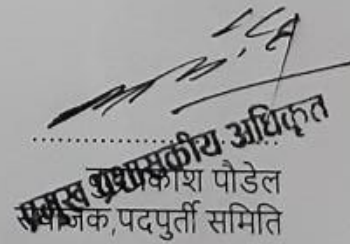 प्रमुख प्रशासकीय अधिकृत
पौडेल
संयोजक,पदपुर्ती समिति